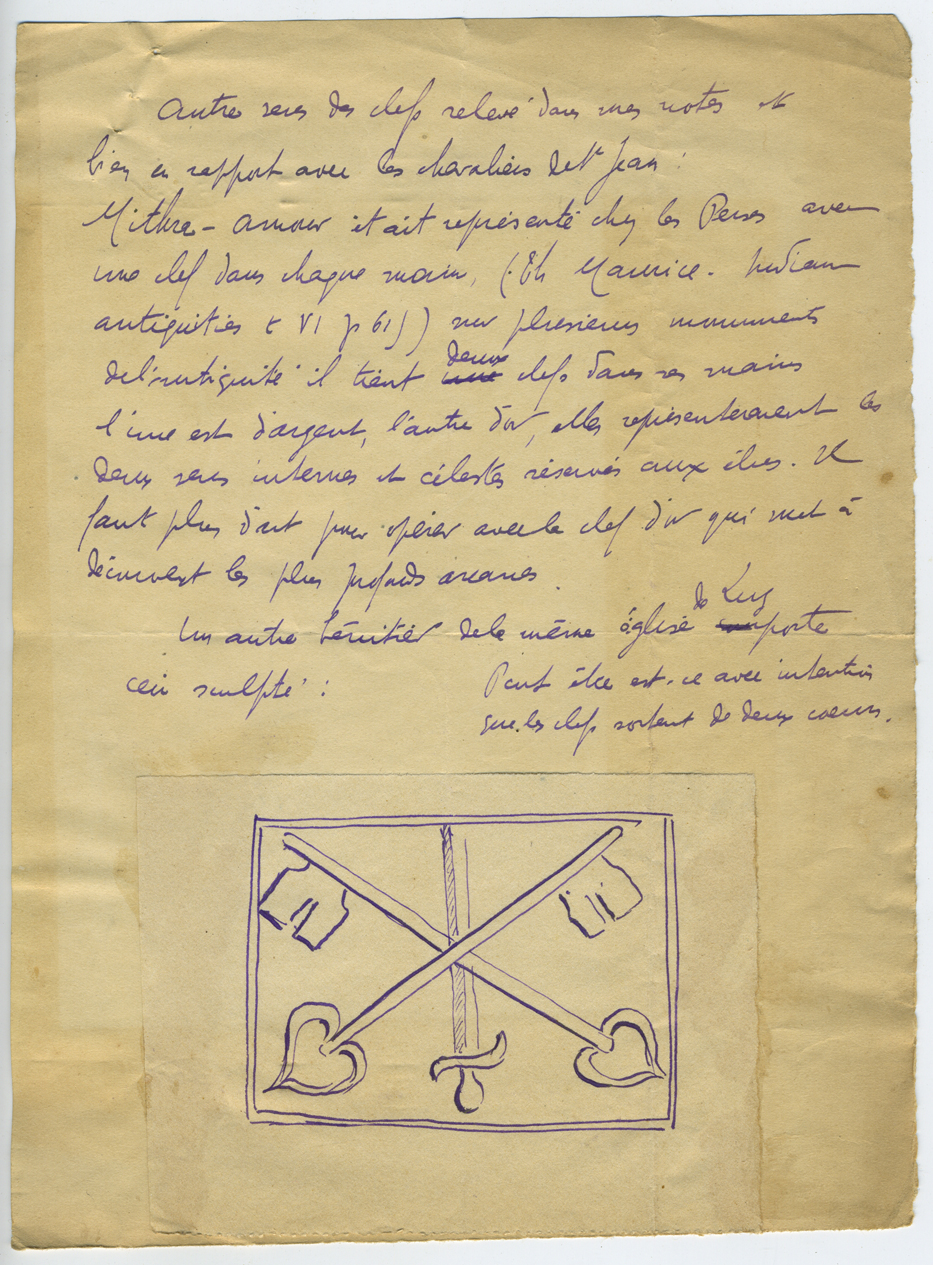 Autre sens des clefs relevé dans mes notes et
bien en rapport avec les chevaliers de St Jean :
Mithra - amour était représenté chez les Perses avec
une clef dans chaque main, (Th Maurice. Indian
antiquities t VI p 61)) sur plusieurs monuments
de l'antiquité il tient deux clefs dans ses mains
l'une est d'argent, l'autre d'or, elles représenteraient les
deux sens internes et célestes réservés aux élus. Il
faut plus d'art pour opérer avec la clef d'or qui met à
découvert les plus profonds arcanes.
Un autre bénitier de la même église de Luz porte
ceci sculpté :
Peut être est-ce avec intention
que les clefs sortent de deux coeurs.